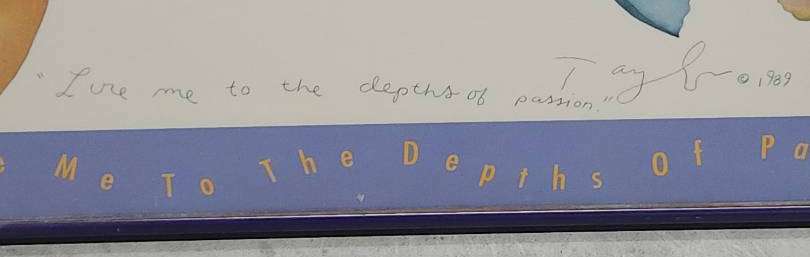 "Lure me to the depths of passion." Taylor © 1989
e Me To The Depths Of Pa